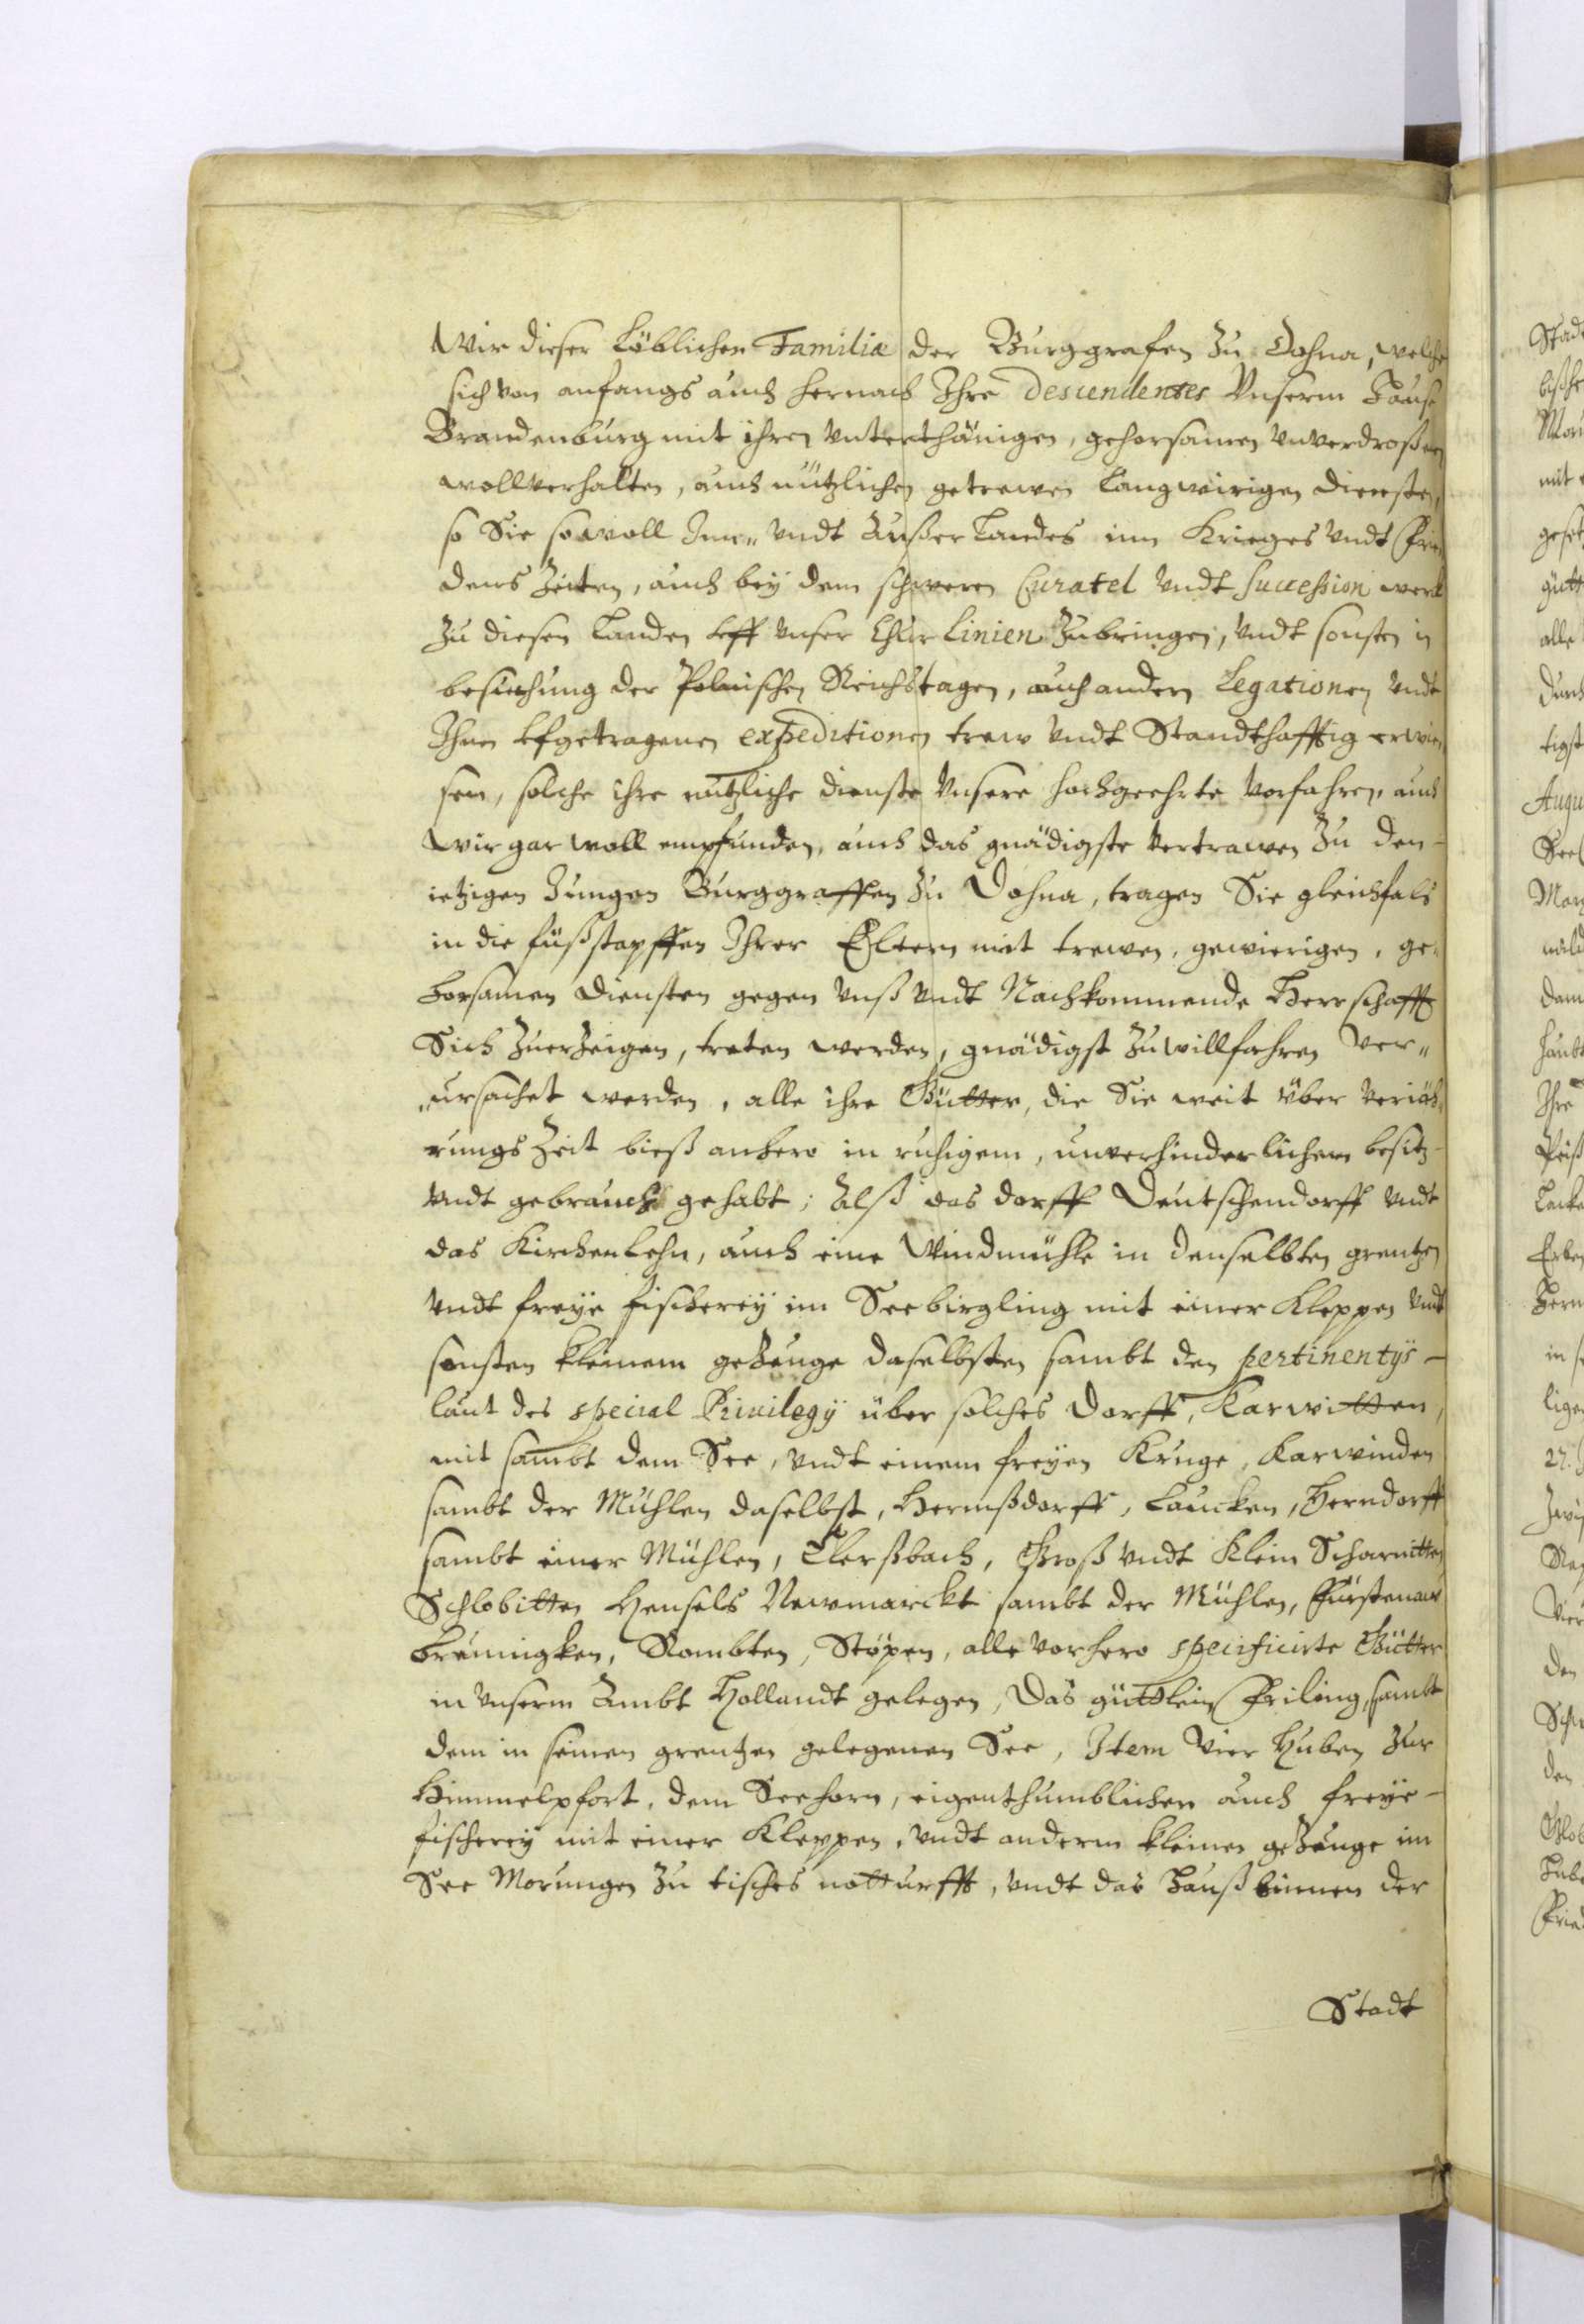 Wir dieser Löblichen Familiæ der Burggrafen zu Dohna, welche
sich von anfangs auch hernach Ihre descendentes Vnserm Hause
Brandenburg mit ihren vnterthänigen, gehorsamen vnverdroßnen
wollverhalten, auch nützlichen getrewen Langwirigen diensten,
so Sie sowoll Inn" vndt Außer Landes inn Krieges vndt Frie
dens Zeiten, auch bey dem schweren Curatel vndt Succession werck
zu diesen Landen vff vnser Chur Linien zubringen, vndt sonsten in
besuchung der Polnischen Reichstagen, auch andern Legationen vndt
Ihnen vfgetragenen expeditionen trew vndt Standthafftig erwie
sen, solche ihre nutzliche dienste Vnsere hochgeehrte Vorfahren auch
wir gar woll empfunden, auch das gnädigste Vertrawen zu den-
ietzigen Jungen Burggraffen zu Dohna, tragen Sie gleichfals
in die fußstapffen Ihrer Eltern mit trewen, gewierigen, ge-
horsamen diensten gegen Vnß vndt Nachkommende Herrschafft
Sich zuerzeigen, treten werden, gnädigst zuwillfahren ver"
"ursachet werden, alle ihre Gütter, die Sie weit über veriäh-
rungs Zeit bieß anhero in ruhigem, unverhinderlichem besitz-
vndt gebrauch gehabt; Alß das dorff Deutschendorff vndt
das Kirchenlehn, auch eine Windmühle in denselbten grentzen
vndt freye fischerey im See birgling mit einer Kleppen vndt
sonsten kleinem gezeuge daselbsten sambt den pertinentys-
laut des special Priuilegy über solches Dorff, Karwitten,
mit sambt dem See, vndt einem freyen Kruge, Karwinden
sambt der Mühlen daselbst, Hermßdorff, Laucken, Herndorff
sambt einer Mühlen, Ebersbach, Groß vndt Klein Scharnitten
Schlobitten Hensels Newmarckt sambt der Mühlen, Fürstenaw
Breunigken, Kombten, Stöpen, alle vorhero specificirte Gütter
in vnserm Ambt Hollandt gelegen, Das güttlein Friling, sambt
dem in seinen grentzen gelegenen See, Item Vier Huben zur
Himmelpfort, dem Seehorn, eigenthumblichen auch freye-
fischerey mit einer Kleppen, vndt anderm kleinen gezeuge im
See Morungen zu tisches notturfft, vndt das Hauß binnen der
Stadt